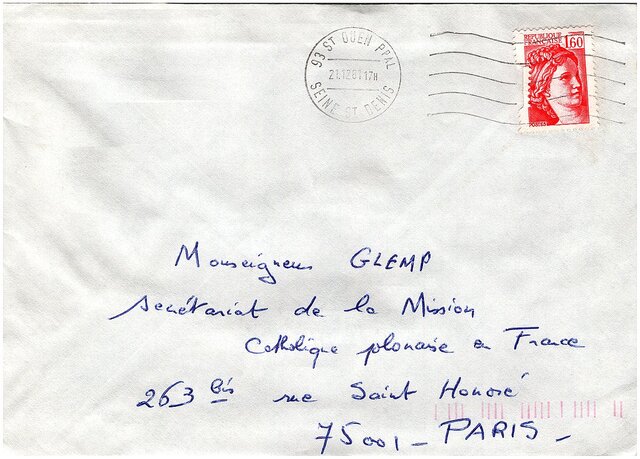 93 ST OUEN PPAL
21.12.81 17H
SEINE ST DENIS
REPUBLIQUE
FRANCAISE
1,60
POSTES
Monseigneur GLEMP
Secrétariat de la Mission
Catholique polonaise en France
263 bis rue Saint Honoré
75001 - PARIS -